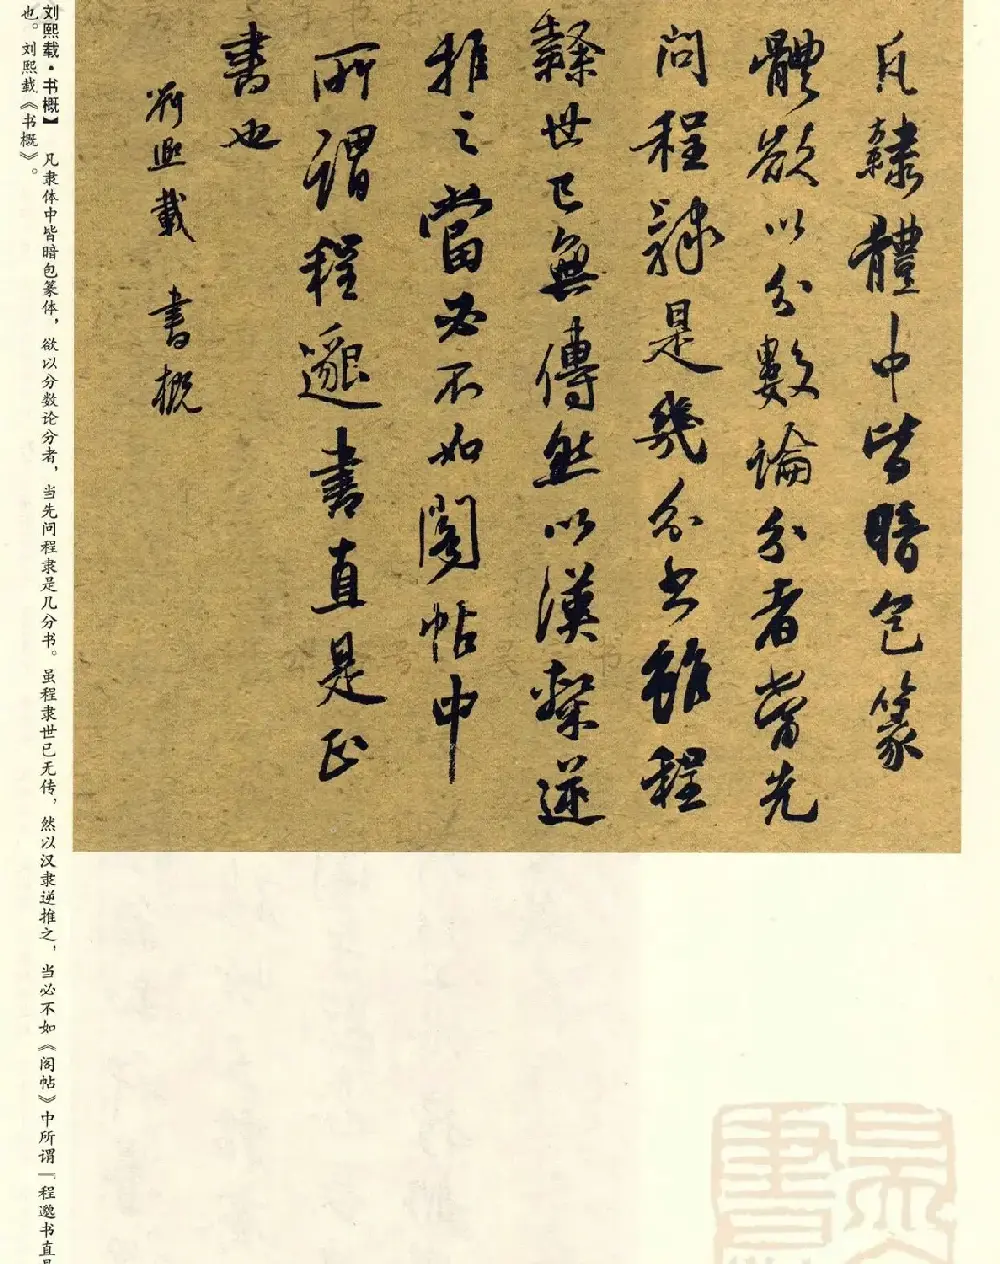 凡隸體中皆暗包篆
體欲以分數論分者當先
問程隸是幾分書雖程
隸世已無傳然以漢隸逆
推之當必不如閣帖中
所謂程邈書直是正
書也
劉熙載 書概
刘熙载·书概】 凡隶体中皆暗包篆体，欲以分数论分者，当先问程隶是几分书。虽程隶世已无传，然以汉隶逆推之，当必不如《阁帖》中所谓「程邈书直是
也。刘熙载《书概》。